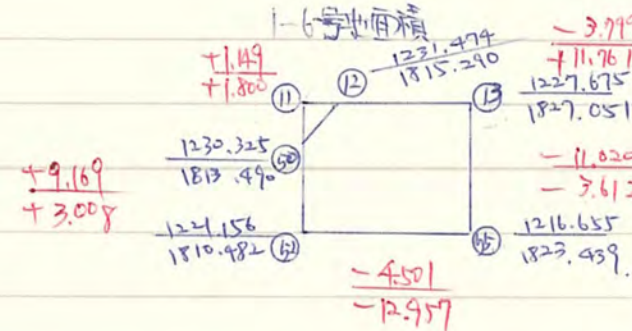 1-6号地面積
+1.149
+1.800
1231.474
1815.290
-3.799
+11.761
11
12
13
1227.675
1827.051
1230.325
1813.490
-11.020
-3.612
+9.169
+3.008
1221.156
1810.482
1216.655
1823.439
-4.501
-12.957